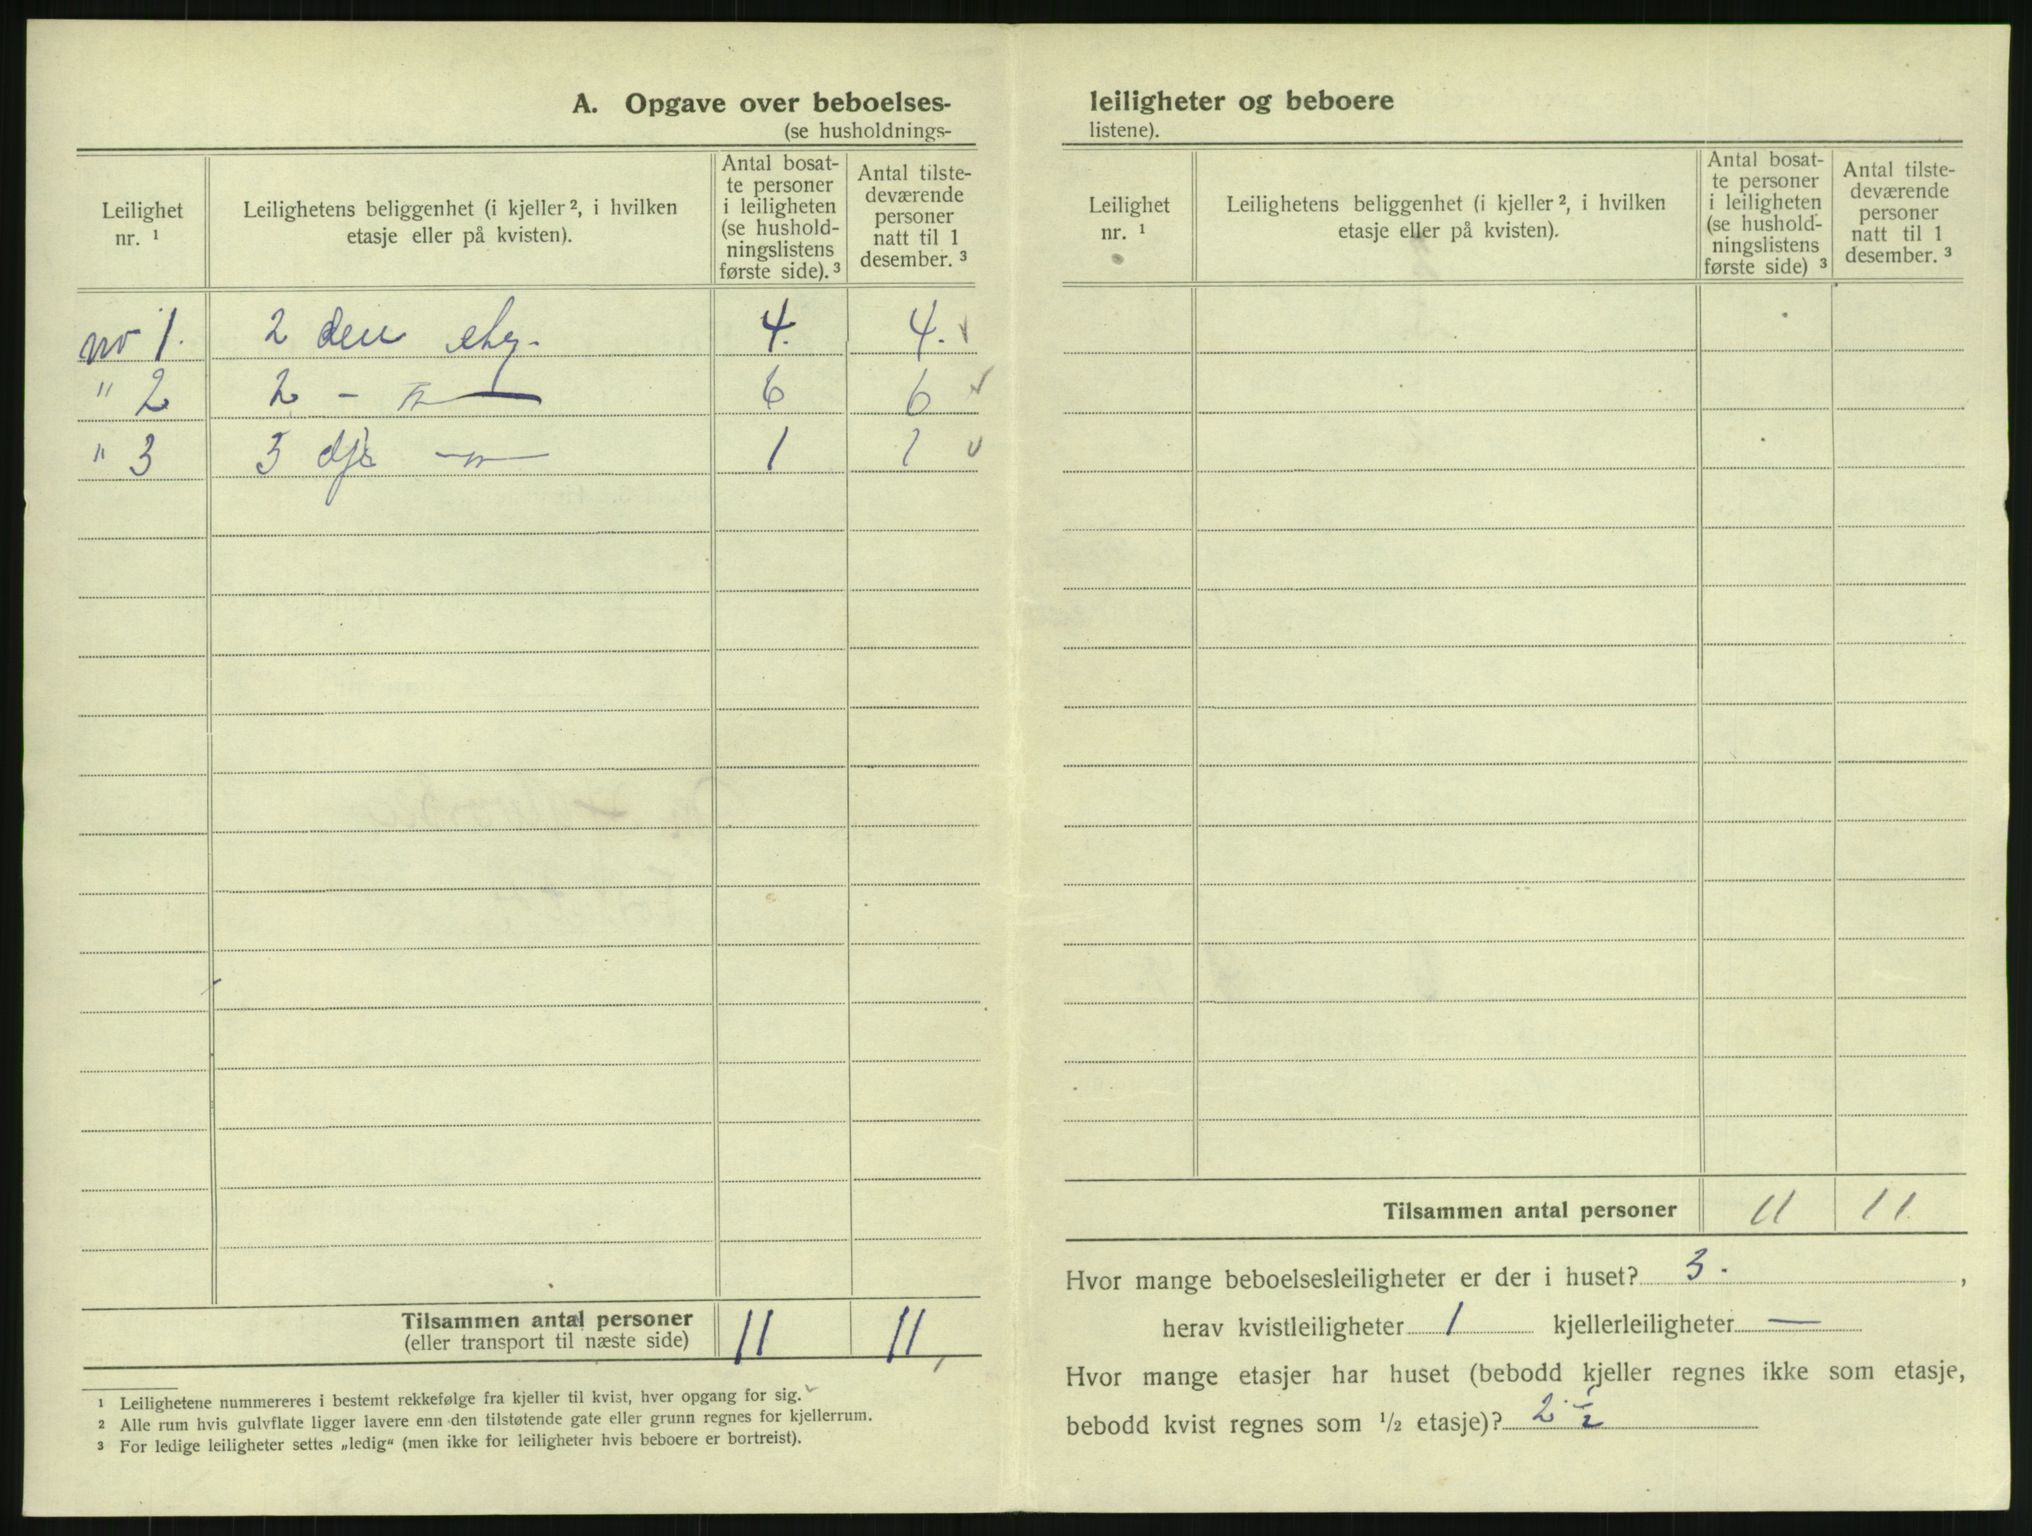 A. Opgave over beboelses-
(se husholdnings-
Leilighet
nr. ¹
Leilighetens beliggenhet (i kjeller ², i hvilken
etasje eller på kvisten).
Antal bosat-
te personer
i leiligheten
(se hushold-
ningslistens
første side). ³
Antal tilste-
deværende
personer
natt til 1
desember. ³
no 1. 2 den etg. 4. 4.
" 2 2 - " 6 6
" 3 3 dje - " - 1 1
Tilsammen antal personer 11 11
(eller transport til næste side)
¹ Leilighetene nummereres i bestemt rekkefølge fra kjeller til kvist, hver opgang for sig.
² Alle rum hvis gulvflate ligger lavere enn den tilstøtende gate eller grunn regnes for kjellerrum.
³ For ledige leiligheter settes „ledig“ (men ikke for leiligheter hvis beboere er bortreist).
leiligheter og beboere
listene).
Leilighet
nr. ¹
Leilighetens beliggenhet (i kjeller ², i hvilken
etasje eller på kvisten).
Antal bosat-
te personer
i leiligheten
(se hushold-
ningslistens
første side) ³
Antal tilste-
deværende
personer
natt til 1
desember. ³
Tilsammen antal personer 11 11
Hvor mange beboelsesleiligheter er der i huset? 3. ,
herav kvistleiligheter 1 kjellerleiligheter —
Hvor mange etasjer har huset (bebodd kjeller regnes ikke som etasje,
bebodd kvist regnes som 1/2 etasje)? 2 1/2